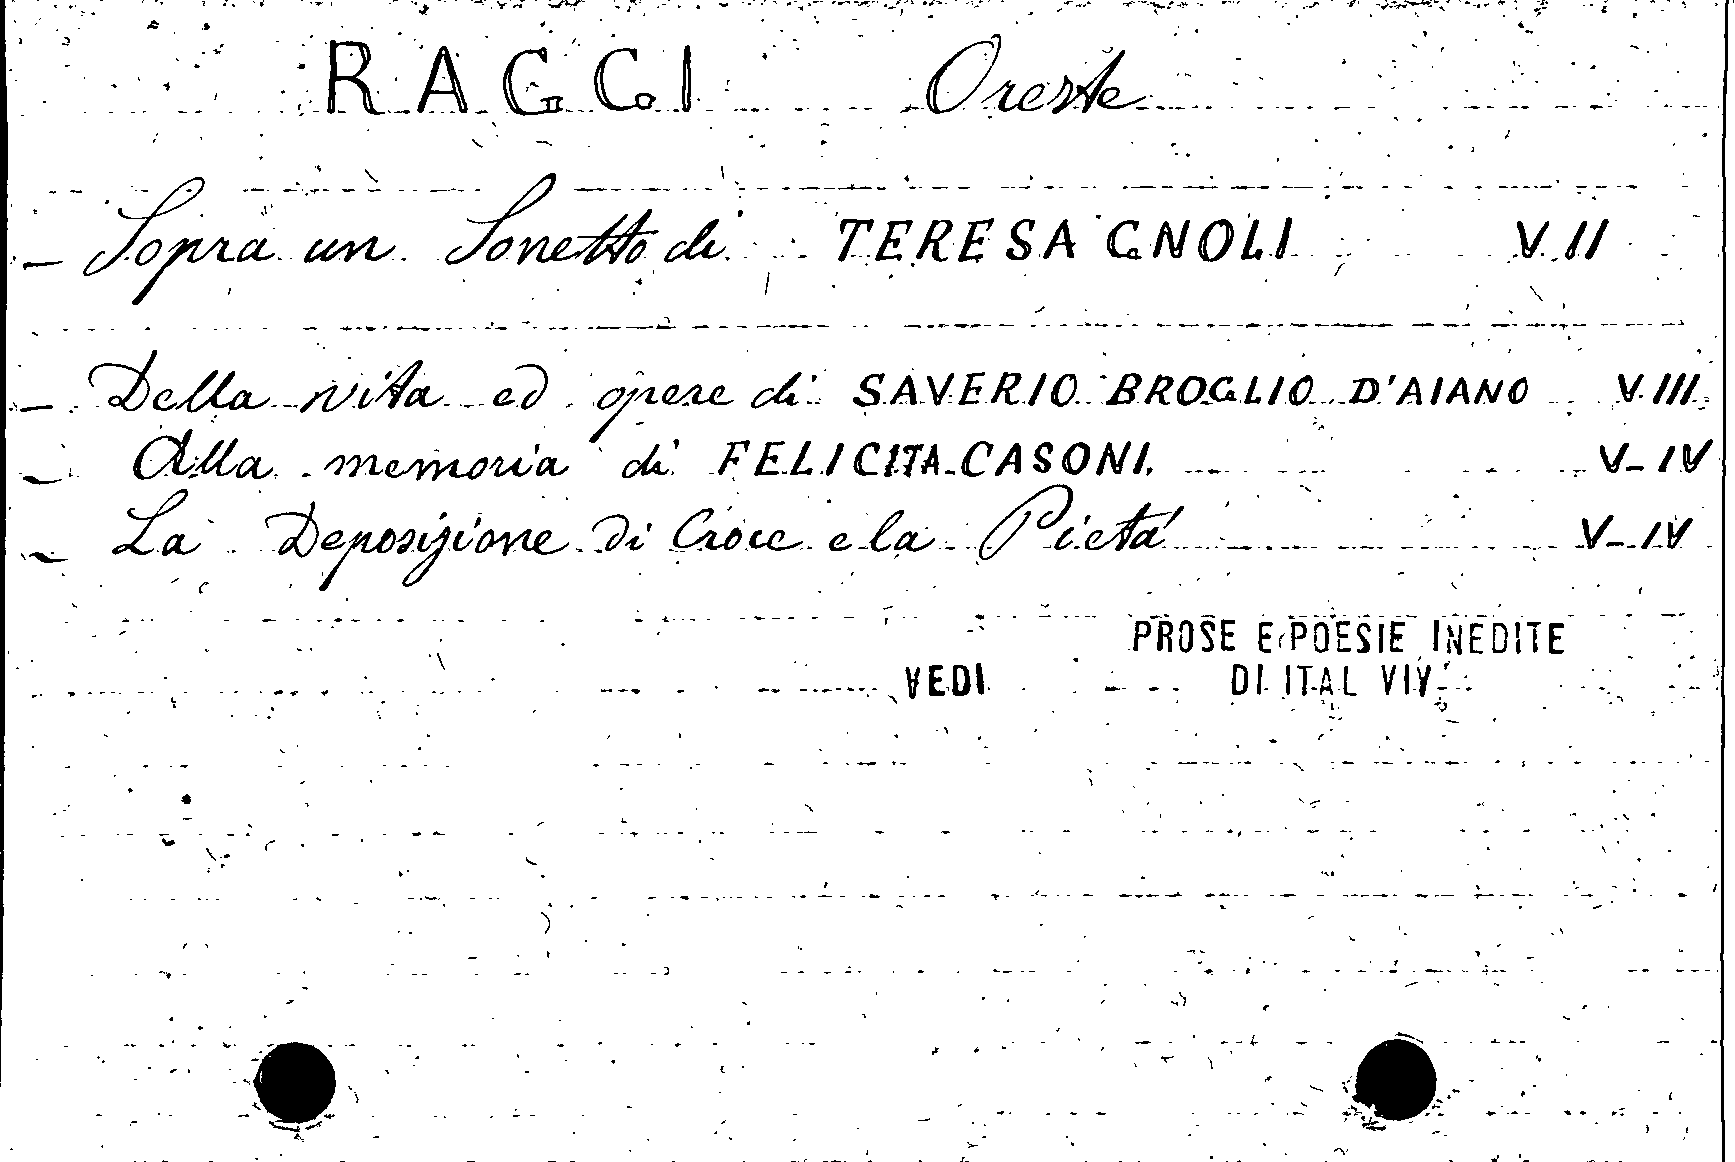 RAGGI Oreste
- Sopra un Sonetto di TERESA GNOLI V.II
- Della vita ed opere di SAVERIO BROGLIO D'AIANO V.III.
- Alla memoria di FELICITA CASONI. V-IV
- La Deposizione di Croce e la Pietá V-IV
PROSE E POESIE INEDITE
VEDI DI ITAL VIV.